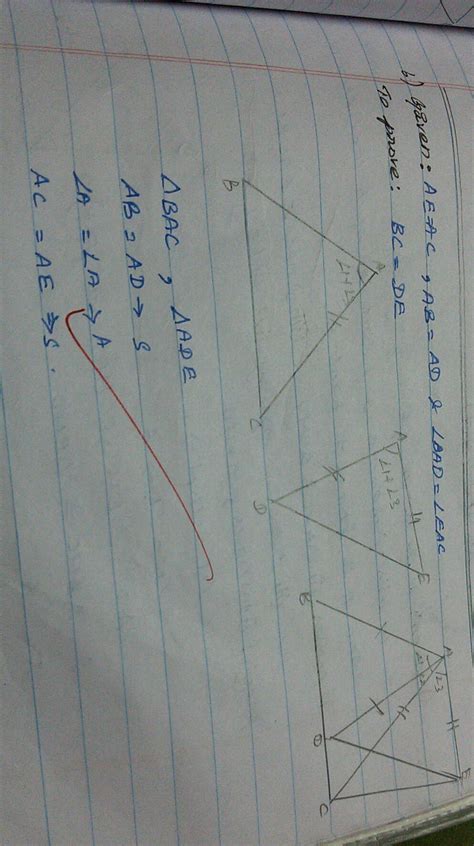 b) Given: AE=AC, AB=AD & ∠BAD=∠EAC
To prove: BC=DE
A
∠1+∠2
B
C
A
∠1+∠3
D
E
A
∠3
2
B
D
C
E
△BAC, △ADE
AB=AD→S
∠A=∠A→A
AC=AE⇒S.